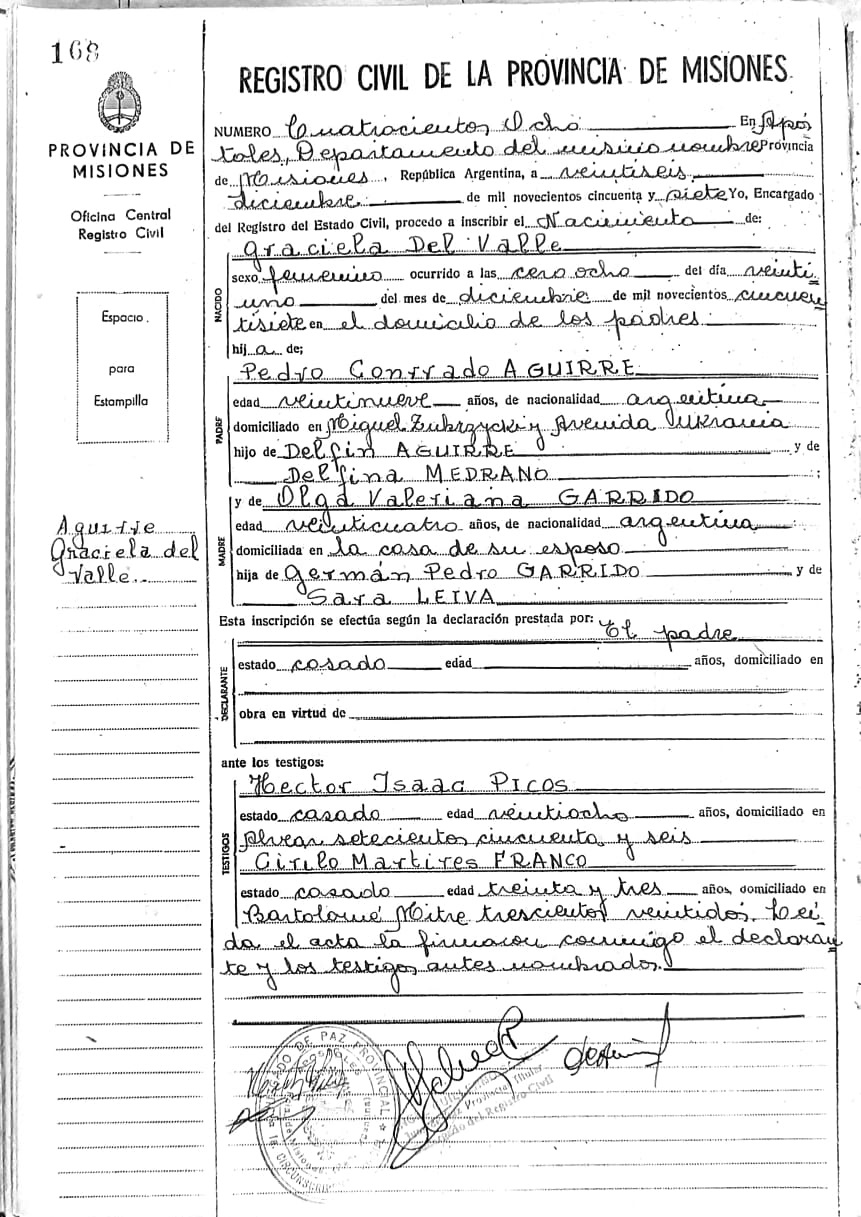 168
PROVINCIA DE
MISIONES
Oficina Central
Registro Civil
Espacio
para
Estampilla
Aguirre
Graciela del
Valle.
REGISTRO CIVIL DE LA PROVINCIA DE MISIONES
NUMERO Cuatrocientos Ocho En Após
toles, Departamento del mismo nombre Provincia
de Misiones, República Argentina, a veintiseis
diciembre de mil novecientos cincuenta y siete Yo, Encargado
del Registro del Estado Civil, procedo a inscribir el Nacimiento de:
Graciela Del Valle
NACIDO
sexo femenino ocurrido a las cero ocho del día veinti
uno del mes de diciembre de mil novecientos cincuen
tisiete en el domicilio de los padres
hija de;
Pedro Conrrado AGUIRRE
PADRE
edad veintinueve años, de nacionalidad argentina
domiciliado en Miguel Zubrzycki y Avenida Ukrania
hijo de Delfin AGUIRRE y de
Delfina MEDRANO ;
y de Olga Valeriana GARRIDO
MADRE
edad veinticuatro años, de nacionalidad argentina
domiciliada en la casa de su esposo
hija de Germán Pedro GARRIDO y de
Sara LEIVA
Esta inscripción se efectúa según la declaración prestada por: El padre
DECLARANTE
estado casado edad años, domiciliado en
obra en virtud de
ante los testigos:
Hector Isaac PICOS
TESTIGOS
estado casado edad veintiocho años, domiciliado en
Alvear setecientos cincuenta y seis
Cirilo Martires FRANCO
estado casado edad treinta y tres años, domiciliado en
Bartolomé Mitre trescientos veintidos. Leí
da el acta la firmaron conmigo el declaran
te y los testigos antes nombrados.
DE PAZ PROVINCIAL
Provincial Titular
del Registro Civil